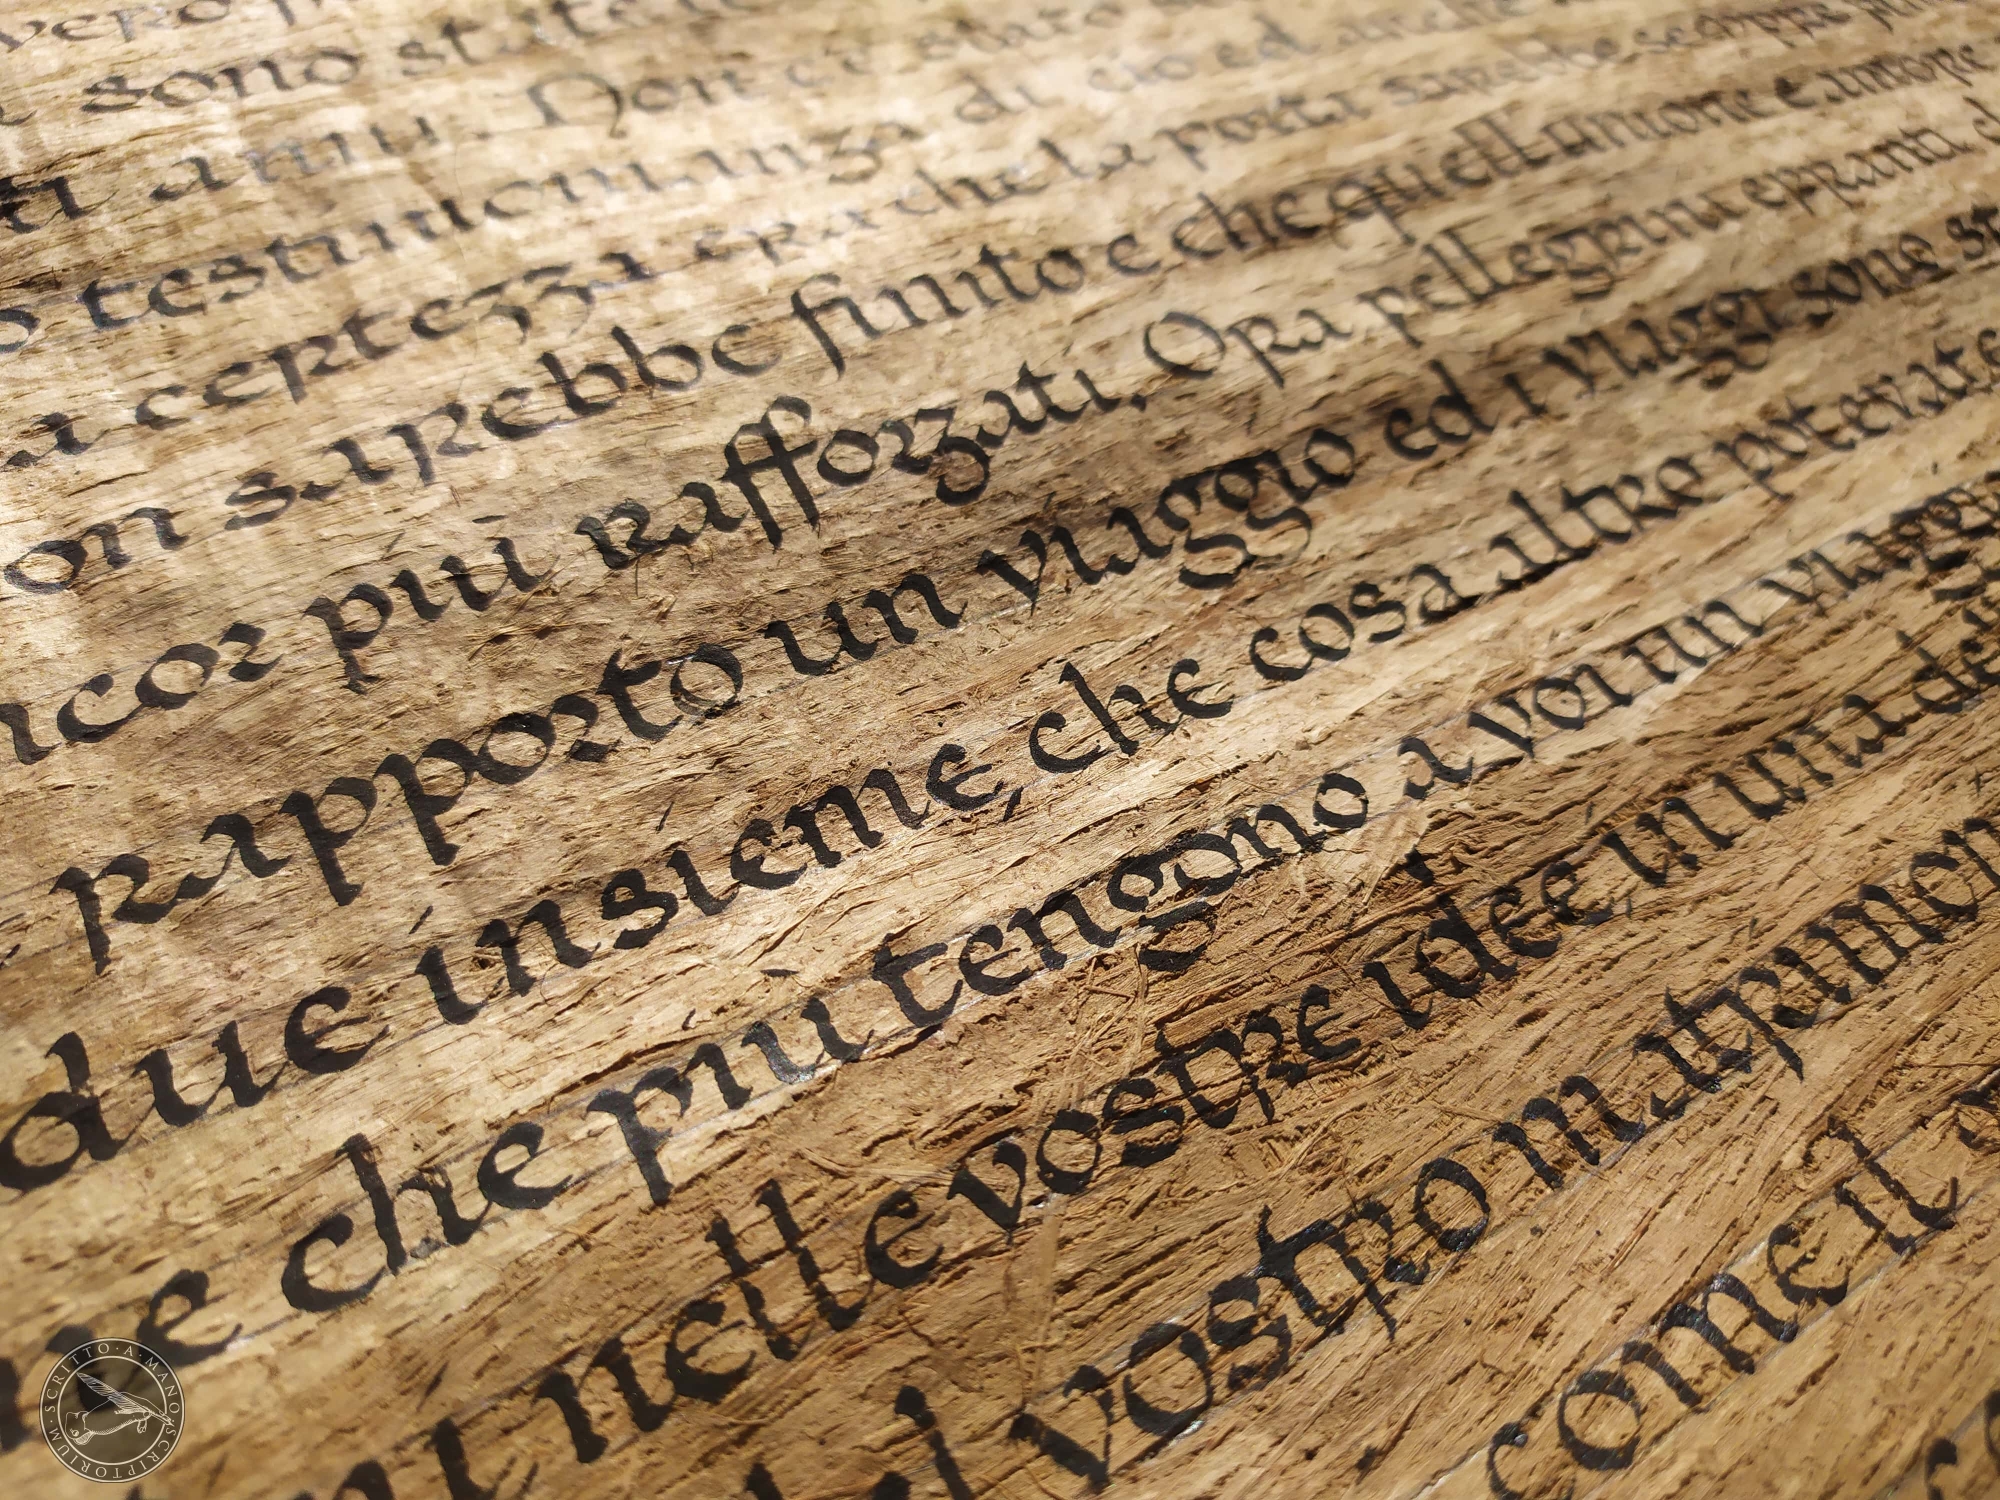 sono state
anni. Non c'è stato
testimonianza di ciò ed anche
certezzi era che la porti sarebbe scappa
on sarebbe finito e che quell'unione e amore
ncor più rafforzati. Ora pellegrini erranti,
rapporto un viaggio ed i viaggi sono st
due insieme, che cosa altro potevate
che più tengono a voi un viaggen
nelle vostre idee in una de
vostro matrimon
come il
SCRITTO·A·MANO·SCRIPTORIUM